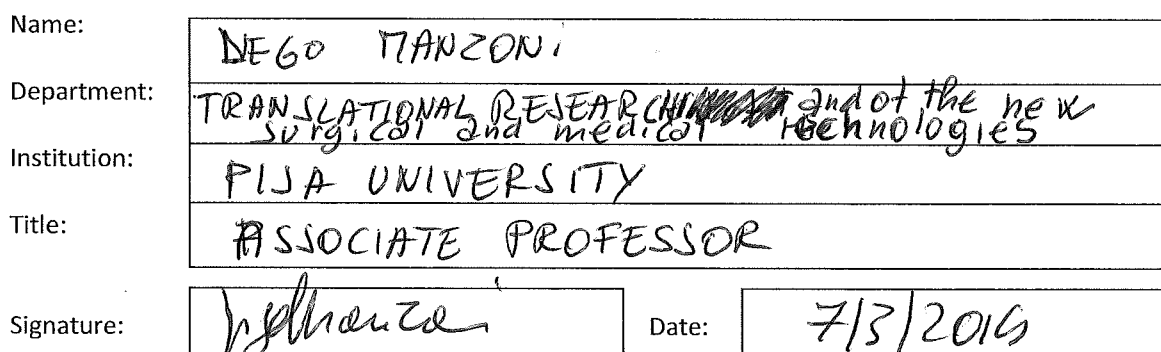 Name: DEGO MANZONI
Department: TRANSLATIONAL RESEARCH and of the new
surgical and medical technologies
Institution: PISA UNIVERSITY
Title: ASSOCIATE PROFESSOR
Signature: Date: 7/3/